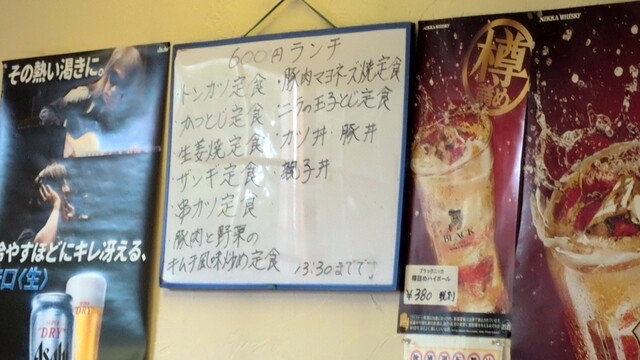 600円ランチ
・トンカツ定食
・かつとじ定食
・生姜焼定食
・ザンギ定食
・串カツ定食
・豚肉と野菜の
キムチ風味炒め定食
・豚肉マヨネーズ焼定食
・ニラの玉子とじ定食
・カツ丼・豚丼
・親子丼
13:30までです。
その熱い渇きに。
Asahi
冷やすほどにキレ冴える、
辛口〈生〉
"DRY"
"DRY"
Asahi
NIKKA WHISKY
樽
詰め
BLACK
ブラックニッカ
樽詰めハイボール
¥380 税別
NIKKA WHISKY